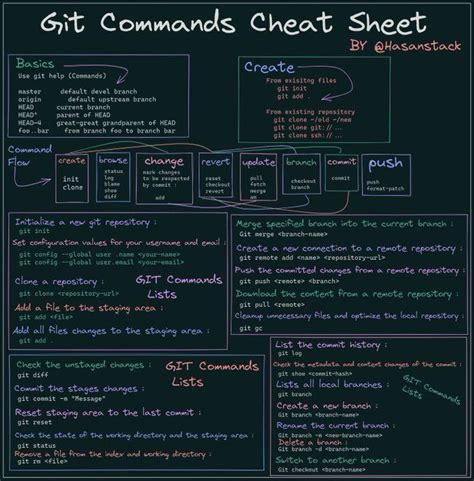 Git Commands Cheat Sheet
BY @Hasanstack
Basics
Use git help (Commands)
master default devel branch
origin default upstream branch
HEAD current branch
HEAD^ parent of HEAD
HEAD~4 great-great grandparent of HEAD
foo..bar from branch foo to branch bar
Create
From exisitng files
git init
git add .
From existing repository
git clone ~/old ~/new
git clone git://...
git clone ssh://...
Command
Flow
create
init
clone
browse
status
log
blame
show
diff
change
mark changes
to be respected
by commit :
add
revert
reset
checkout
revert
update
pull
fetch
merge
am
branch
checkout
branch
commit
commit
push
push
format-patch
Initialize a new git repository :
git init
Set configuration values for your username and email :
git config --global user .name <your-name>
git config --global user.email <your-email>
Clone a repository :
git clone <repository-url>
Add a file to the staging area :
git add <file>
Add all files changes to the staging area :
git add .
GIT Commands
Lists
Merge specified branch into the current branch :
Git merge <branch-name>
Create a new connection to a remote repository :
git remote add <name> <repository-url>
Push the committed changes from a remote repository :
git push <remote> <branch>
Download the content from a remote repository :
git pull <remote>
Cleanup unnecessary files and optimize the local repository :
git gc
Check the unstaged changes :
git diff
Commit the stages changes :
git commit -m "Message"
Reset staging area to the last commit :
git reset
Check the state of the working directory and the staging area :
git status
Remove a file from the index and working directory :
git rm <file>
GIT Commands
Lists
List the commit history :
git log
Check the metadata and content changes of the commit :
git show <commit-hash>
Lists all local branches :
git branch
Create a new branch :
git branch <branch-name>
Rename the current branch :
Git branch -m <new-branch-name>
Delete a branch :
Git branch -d <branch-name>
Switch to another branch :
Git checkout <branch-name>
GIT Commands
Lists